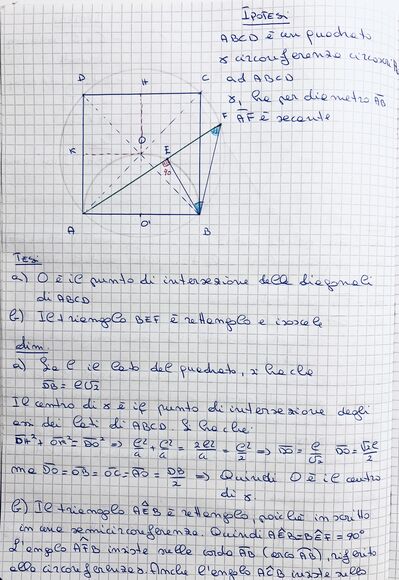 Ipotesi
ABCD è un quadrato
γ circonferenza
ad ABCD
γ, ha per diametro AB
AF è secante
D
H
C
F
K
O
E
90
A
O'
B
Tesi
a) O è il punto di intersezione delle diagonali
di ABCD
b) Il triangolo BEF è rettangolo e isoscele
dim.
a) Sia l il lato del quadrato, si ha che
DB = l√2
Il centro di γ è il punto di intersezione degli
assi dei lati di ABCD. Si ha che:
DH² + OH² = DO² => l²/4 + l²/4 = 2l²/4 = l²/2 => DO = l/√2 DO = √2l/2
ma DO = OB = OC = AO = DB/2 => Quindi O è il centro
di γ.
b) Il triangolo AEB è rettangolo, poiché inscritto
in una semicirconferenza. Quindi AEB = BEF = 90°
L'angolo AFB insiste sulla corda AB (arco AB), riferito
alla circonferenza. Anche l'angolo insiste sulla